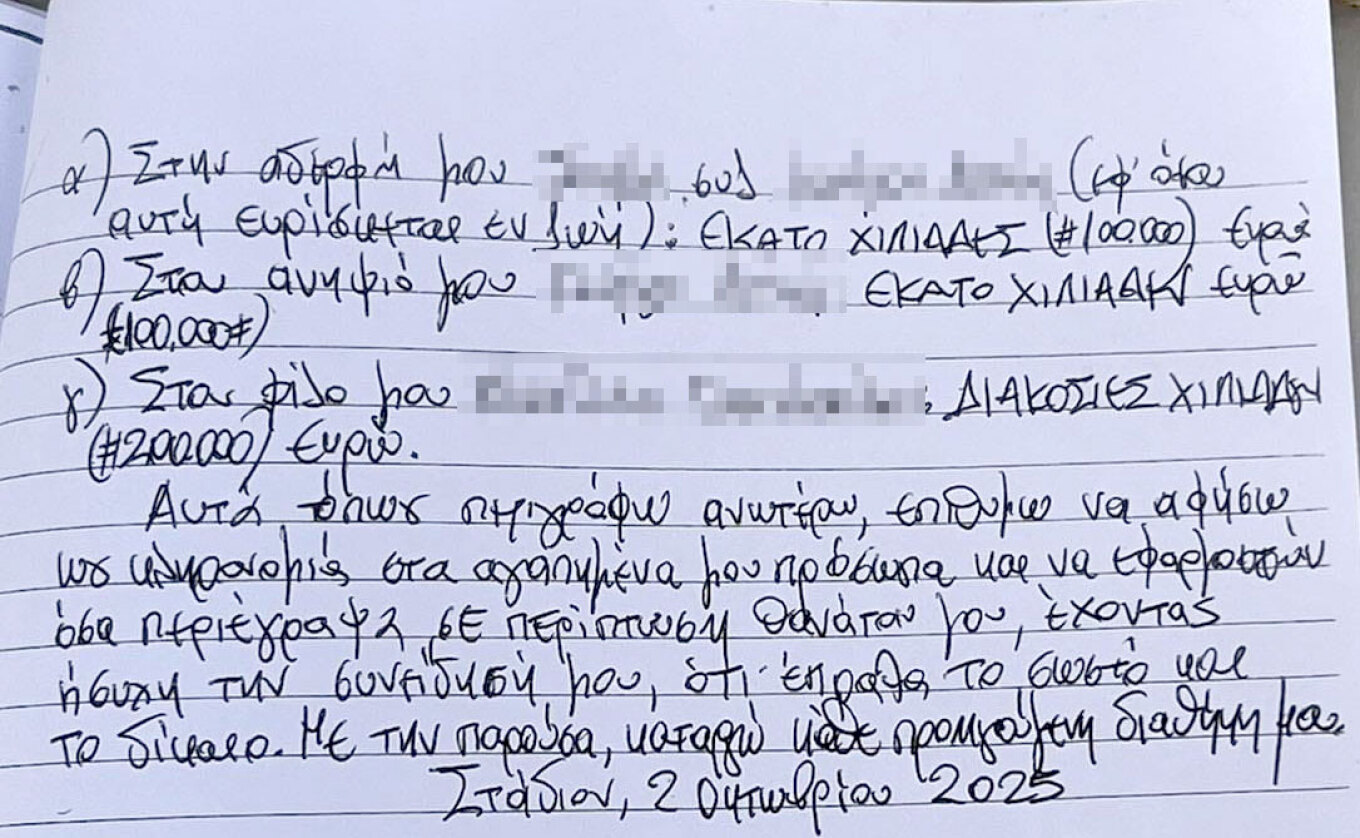 α) Στην αδερφή μου συζ (εφ' όσον
αυτή ευρίσκεται εν ζωή): ΕΚΑΤΟ ΧΙΛΙΑΔΕΣ (#100.000) Ευρώ
β) Στον ανηψιό μου ΕΚΑΤΟ ΧΙΛΙΑΔΕΣ Ευρώ
(#100.000#)
γ) Στον φίλο μου : ΔΙΑΚΟΣΙΕΣ ΧΙΛΙΑΔΕΣ
(#200.000) Ευρώ.
Αυτά όπως περιγράφω ανωτέρω, επιθυμώ να αφήσω
ως κληρονομιά στα αγαπημένα μου πρόσωπα και να εφαρμοστούν
όσα περιέγραψα σε περίπτωση θανάτου μου, έχοντας
ήσυχη την συνείδησή μου, ότι έπραξα το σωστό και
το δίκαιο. Με την παρούσα, καταργώ κάθε προηγούμενη διαθήκη μου.
Στάδιον, 2 Οκτωβρίου 2025